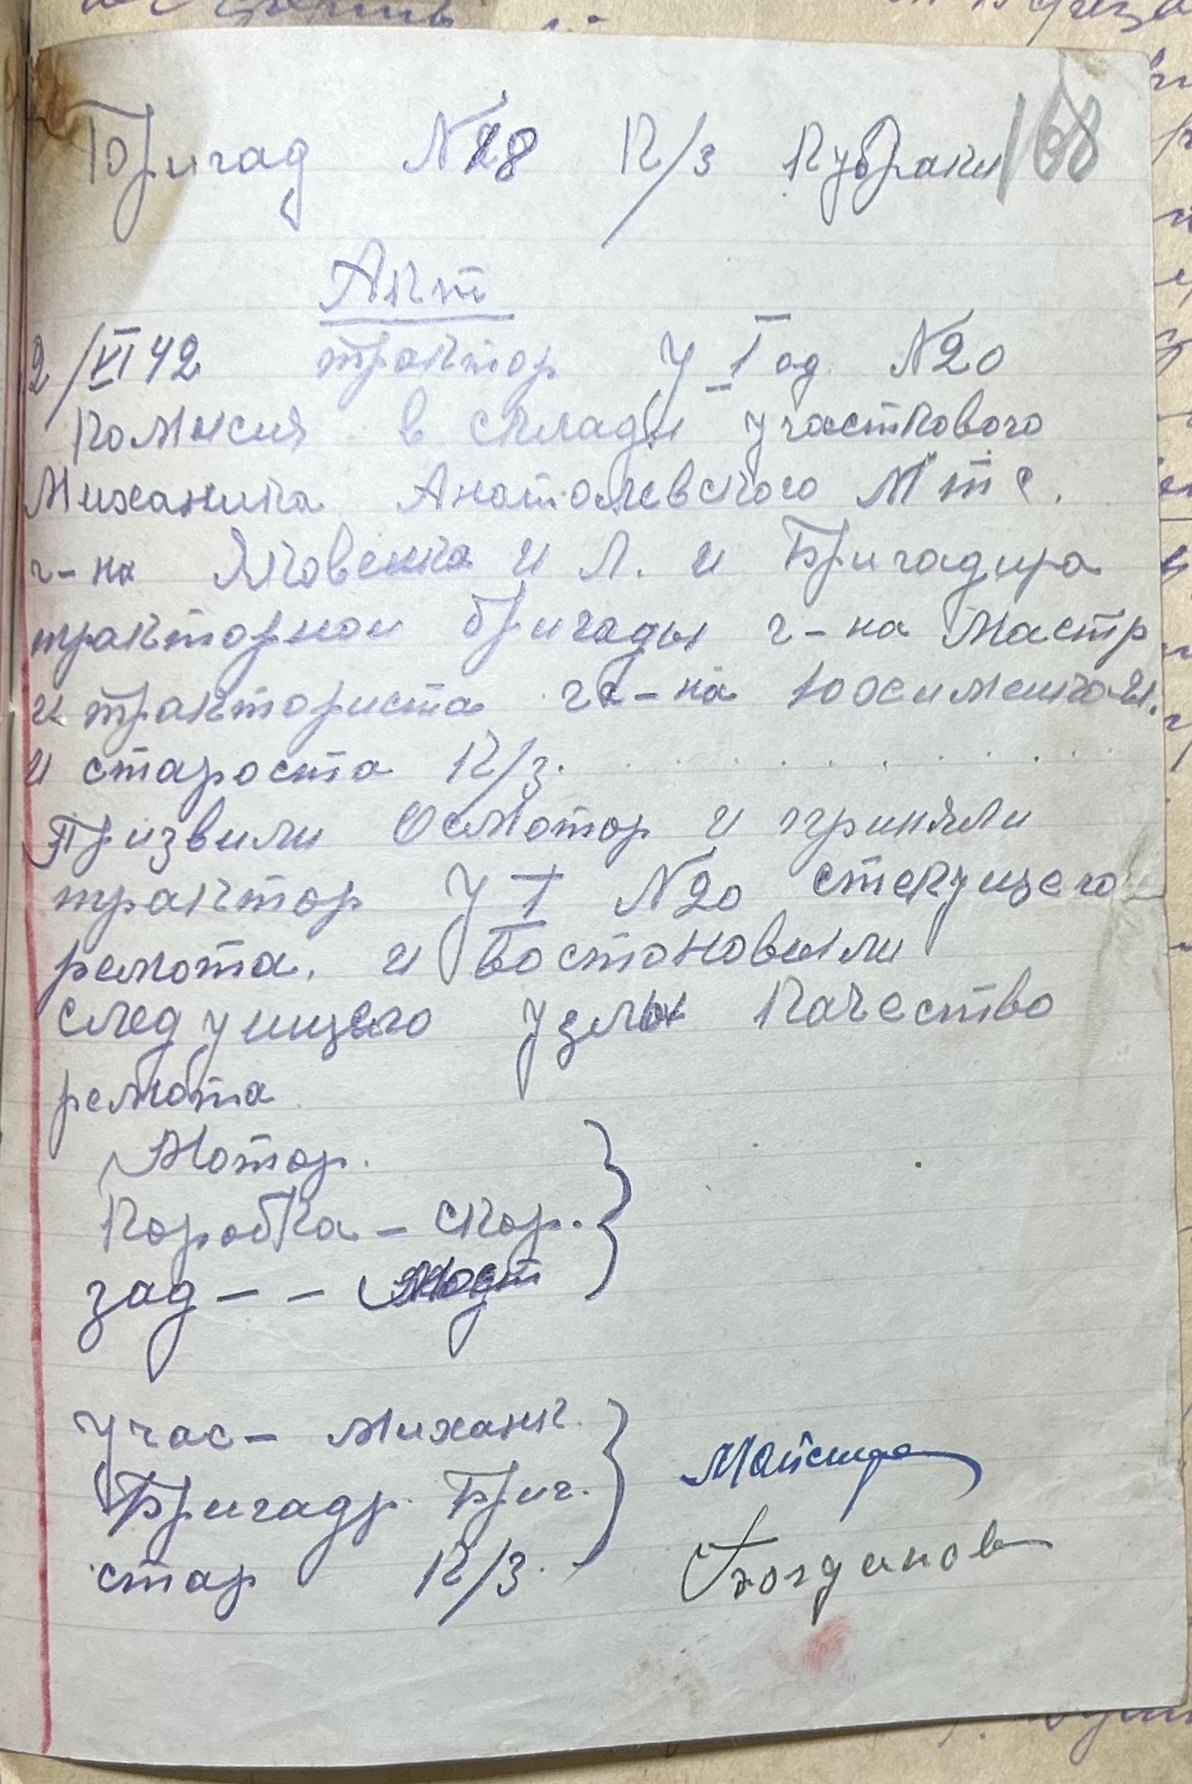 Бригад №28 К/з Кубраки 168
Акт
2/VI 42 трактор У I од №20
комисия в склади участкового
Миханика Анатолевского Мтс.
г-на Яковенка И Л. и Бригадира
тракторнои бригады г-на Мастр
и тракториста г-на
и староста К/з.
Призвили Осмотор и приняли
трактор У I №20 стекущего
ремота. и Востоновили
следующего узлы качество
ремота
Мотор.
коробка - скор.
зад - - Мост
Учас- миханик.
Бригадр. Бриг. Майстр
стар К/з. Богданов